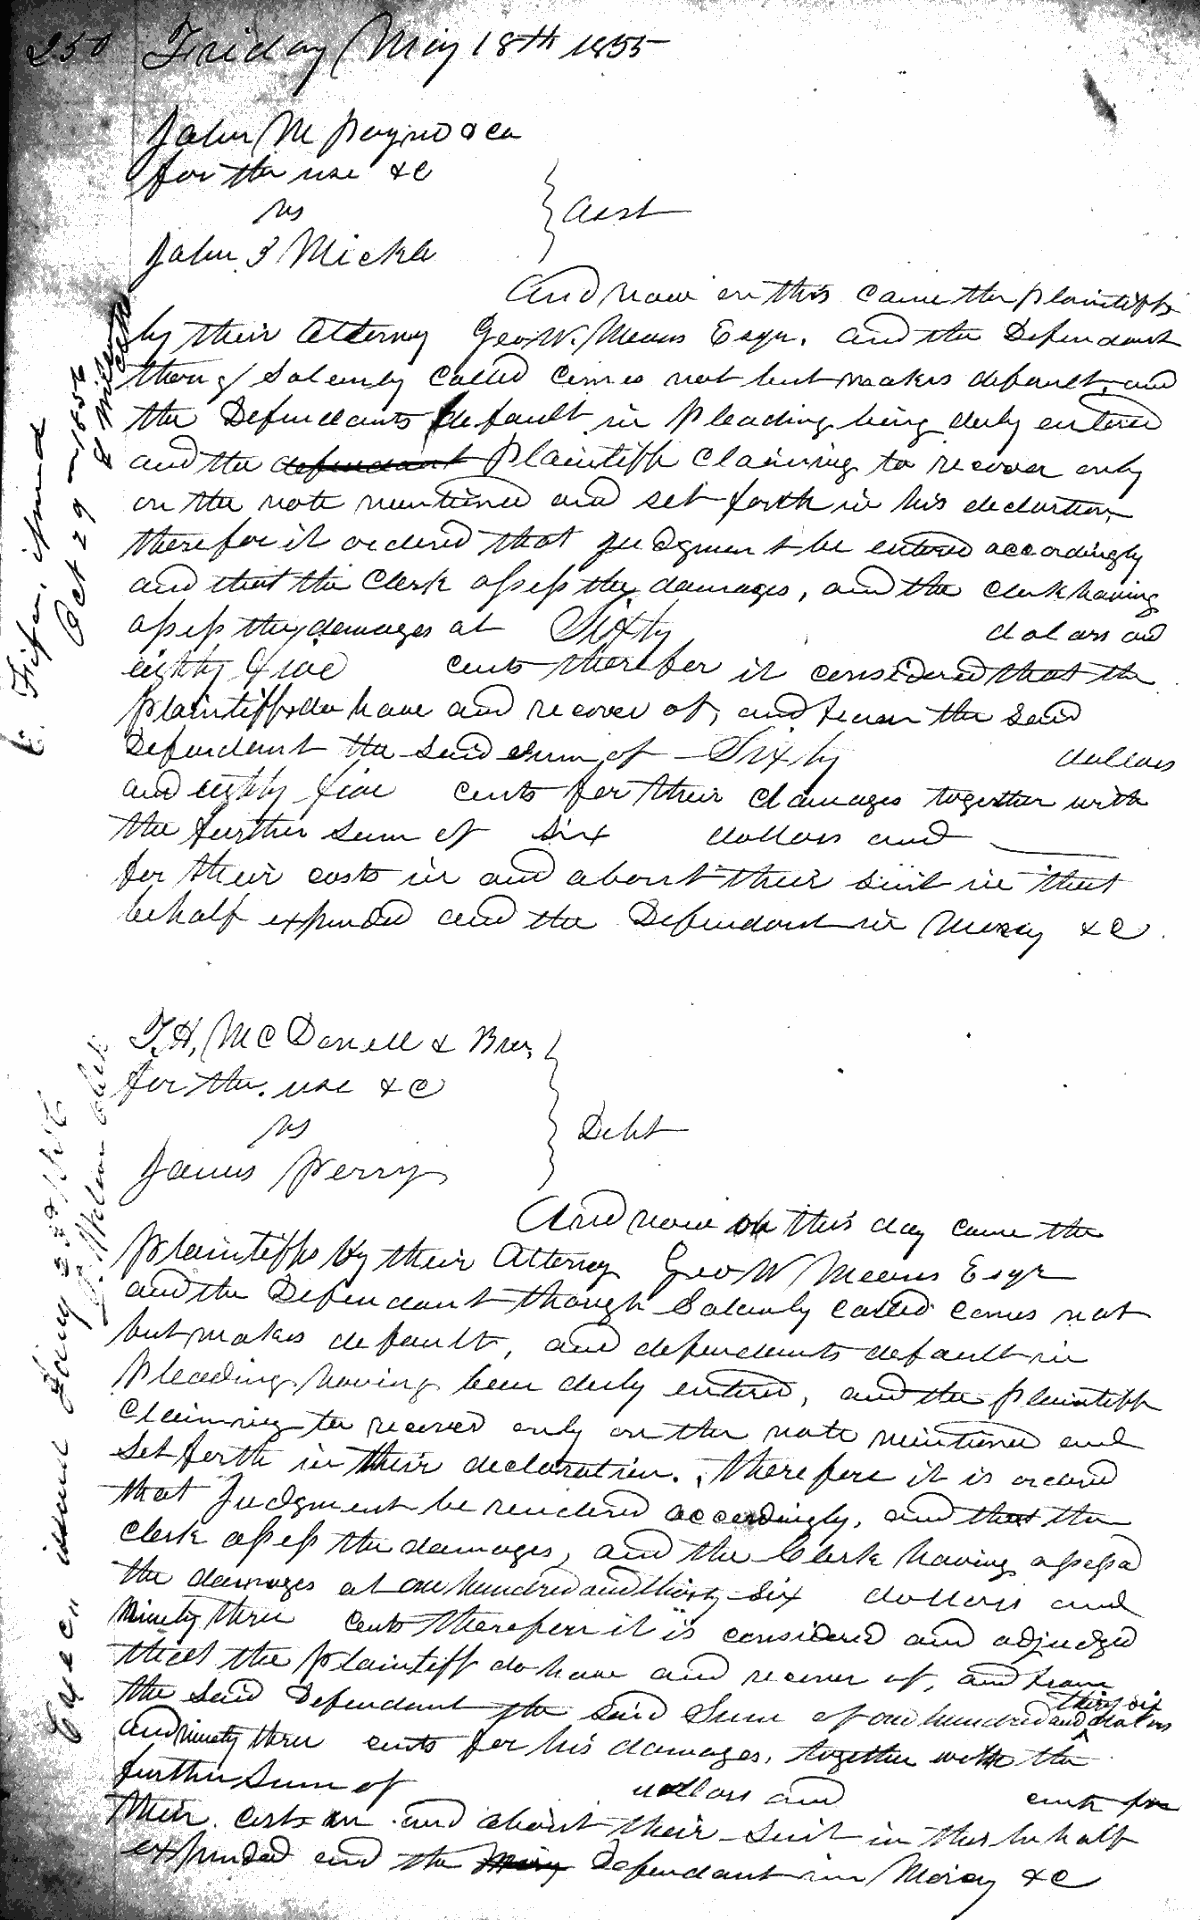 250 Friday May 18th 1855
John M Payne & Co
for the use &C
vs
John J Mickle
Asst
And now on this came the plaintiffs
by their Attorney Geo. W. Means Esqr. and the Defendant
thoug Solemnly called comes not but makes default, and
the Defendants default in pleading being duly entered
and the defendant Plaintiff claiming to recover only
on the note mentioned and set forth in his declartion,
therefor it ordered that judgment be entered accordingly
and that the Clerk assess the damages, and the clerk having
assess the damages at Sixty dolars and
eighty five cents therefor it considered that the
plaintiffs do have and recover of, and from the said
Defendant the said sum of Sixty dollars
and eighty five cents for their damages together with
the further sum of six dollars and
for their costs in and about their suit in that
behalf expended and the Defendant in Mercy &C.
E. Fifa, issued
Oct 29 1855
T.H. McDonell & Bro,
for the use &C
vs
James Perry
Debt
And now on this day came the
Plaintiffs by their Attorney Geo W Means Esqr
and the Defendant though Solemnly called comes not
but makes default, and defendants default in
Pleading having been duly entered, and the plaintiff
Claiming to recover only on the note mentioned and
set forth in their declaration. therefore it is ordered
that Judgment be rendered accordingly, and that the
Clerk assess the damages, and the Clerk having assessd
the damages at one hundred and thirty six dollars and
Ninety three cents therefore it is considered and adjudged
that the Plaintiff do have and recover of, and from
the said Defendant the said Sum of one hundred and thirty six dollars
and ninety three cents for his damages, together with the
further Sum of dollars and cents for
their costs in and about their suit in this behalf
expended and the Mercy Defendant in Mercy &C